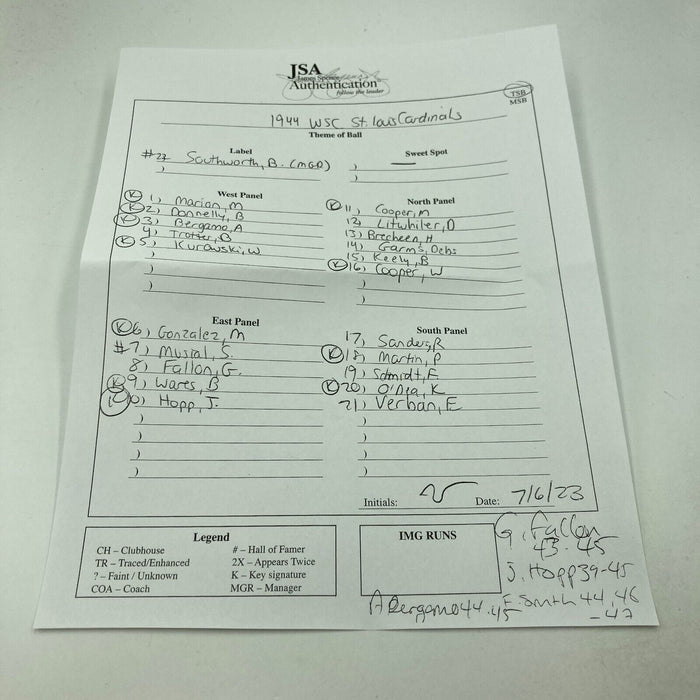 JSA
James Spence
Authentication
follow the leader
TSB
MSB
1944 WSC St. Louis Cardinals
Theme of Ball
Label
#22 Southworth, B. (MGR)
Sweet Spot
—
West Panel
K 1) Marion, M
K 2) Donnelly, B
K 3) Bergamo, A
4) Trotter, B
K 5) Kurowski, W
North Panel
K 11) Cooper, M
12) Litwhiler, D
13) Brecheen, H
14) Garms, Debs
15) Keely, B
K 16) Cooper, W
East Panel
K 6) Gonzalez, M
#7) Musial, S.
8) Fallon, G.
K 9) Wares, B
10) Hopp, J.
South Panel
17) Sanders, R
K 18) Martin, P
19) Schmidt, F.
K 20) O'Dea, K
21) Verban, E
Initials:
Date: 7/6/23
Legend
CH – Clubhouse
TR – Traced/Enhanced
? – Faint / Unknown
COA – Coach
# – Hall of Famer
2X – Appears Twice
K – Key signature
MGR – Manager
IMG RUNS
G. Fallon
43-45
J. Hopp 39-45
A Bergamo 44-45
F. Smith 44, 46
-47